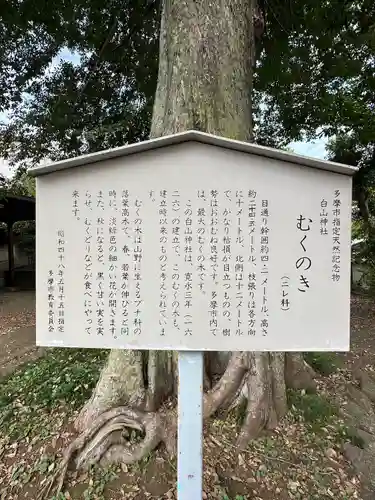 多摩市指定天然記念物
白山神社
むくのき
(ニレ科)
目通り幹囲約四・二メートル、高さ
約二五メートル、枝張りは各方向
に十メートル、北側は十二メートル
で、かなり枯損が目立つものの、樹
勢はおおむね良好です。多摩市内で
は、最大のむくの木です。
この白山神社は、寛永三年(一六
二六)の建立で、このむくの木も、
建立時以来のものと考えられていま
す。
むくの木は山野に生えるブナ科の
落葉高木で、春、若葉が伸びると同
時に、淡緑色の細かい花が開きます。
また、秋になると、黒く甘い実を実
らせ、むくどりなどが食べにやって
来ます。
昭和四十八年五月十五日指定
多摩市教育委員会